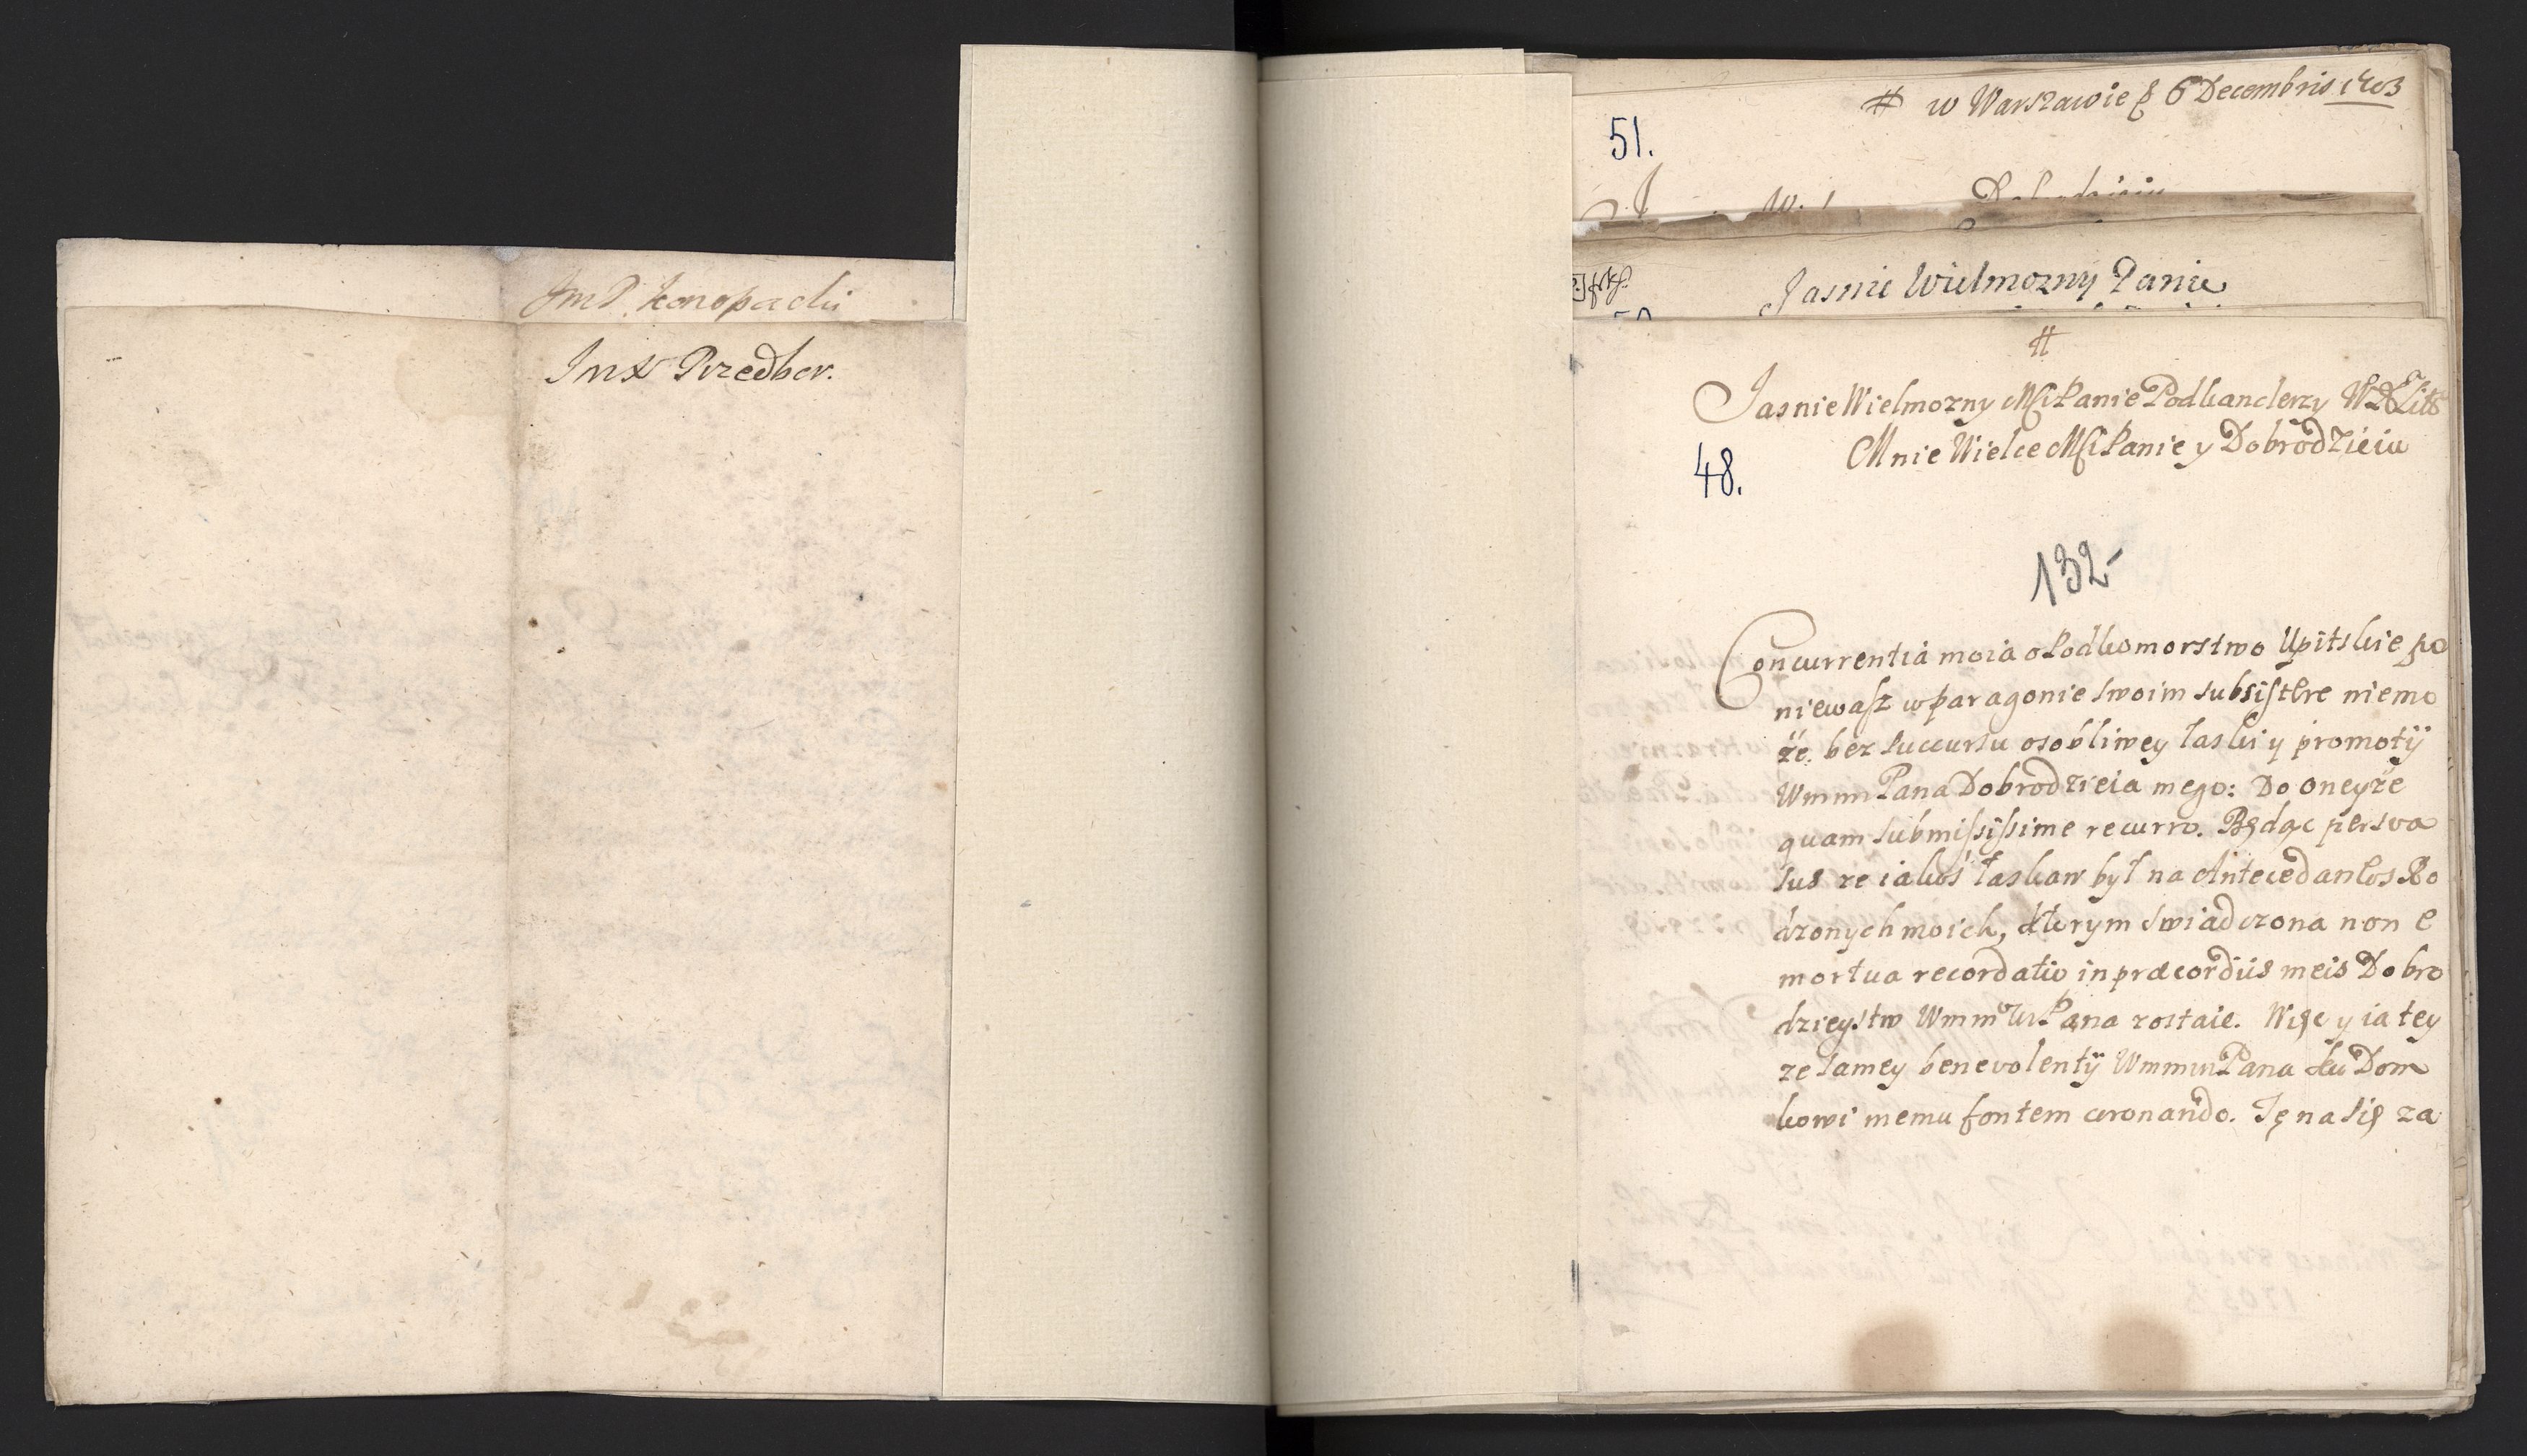 JmP. Konopacki
Jmx Przedber.
# w Warszawie d 6 Decembris 1703
51.
Jasnie Wielmozny Panie
#
Jasnie Wielmozny Msi Panie Podkanclerzy WXLitt
Mnie Wielce Msi Panie y Dobrodzieiu
48.
132
Concurrentia moia o Podkomorstwo Upitskie po
niewasz w paragonie swoim subsistere niemo
że. bez succursu osobliwey łaski y promotÿ
Wmm Pana Dobrodzieia mego: Do oneyże
quam submississime recurro. Będąc persva
sus ze iakoś łaskaw był na Antecedaneos Ro
dzonych moich, ktorym swiadczona non e
mortua recordatio in præcordiis meis Dobro
dzieystw Wmm Pana zostaie. Więc y ia tey
ze samey benevolentÿ Wmm Pana ku Dom
kowi memu fontem coronando. Tę na się za